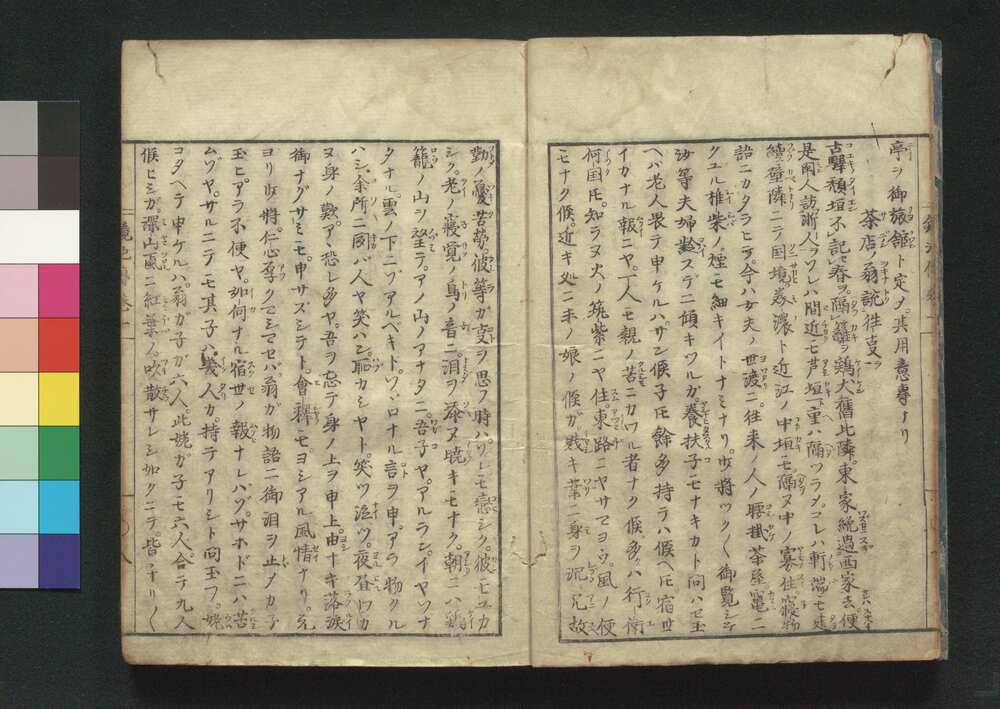 亭ヲ御旅館ト定メ。其用意専ナリ
茶店ノ翁説往事ヲ
古驛頽垣不記春。隔籬鶏犬舊此隣。東家纔過西家去。便
是両人訪渐人。ワレハ間近七芦垣一重ハ隔ツラメ。コレハ斬端モ
續壁隣ニテ国境美濃ト近江ノ中垣モ隔ヌ中ノ寡住寝物
語ニカタラヒテ。今ハ女夫ノ世渡ニ。往来ノ人ノ腰掛茶屋竃ニ
クユル椎柴ノ煙モ細キイトナミナリ。少将ツク〱御覧シテ
汝等夫婦齢ステニ傾キツルガ。養扶子モナキカト問ハセ玉
ヘバ老人畏テ申ケルハ。サン候子𪜈餘多持テハ候ヘ𪜈宿世
イカナル報ニヤ。一人モ親ノ苦ニカワル者ナク候多クハ行衛
何国𪜈。知ラヌ火ノ筑紫ニヤ住。東路ニヤサマヨウ。風ノ便
モナク候。近キ処ニ未ノ娘ノ候ガ賤キ業ニ身ヲ沉ノ故
勤ノ憂苦勞彼等ガ事ヲ思フ時ハ。ソレモ恋シク。彼モユカ
シク。老ノ寝覚ノ鳥ノ音ニ。泪ヲ添ヌ暁キモナク。朝ニハ
籠ノ山ヲ望テ。アノ山ノアナタニ。吾子ヤ。アルランイヤツナ
タナル雲ノ下ニゾアルベキト。ソヾロナル言ヲ申。アラ物クル
ハシ。余所ニ聞バ人ヤ笑ハン。耻カシヤト。笑ツ泣ツ。夜昼ワカ
ヌ身ノ歎。アヽ恐レ多ヤ。吾ヲ忘テ身ノ上ヲ申上。由ナキ落涙
御ナグサミモ。申サズシテト。會釋モヨシアル風情ナリ。元
ヨリ少将。仁心厚クマシマセバ。翁ガ物語ニ御泪ヲ止メカ子
玉ヒ。アラ不便ヤ。如何ナル宿世ノ報ナレバゾ。サホドニハ苦
ムゾヤ。サルニテモ其子ハ。幾人カ持テアリシト問玉フ。姥
コタヘテ申ケルハ。翁ガ子ガ六人。此姥ガ子モ六人。合テ九人
候ヒシガ。深山颪ニ紅葉ノ。吹散サレシ如クニテ。皆チリ〱